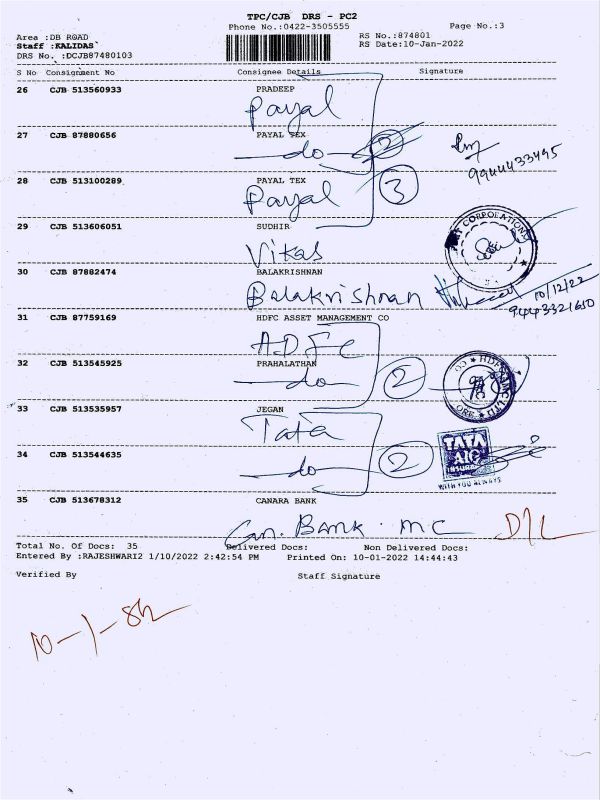 TPC/CJB DRS - PC2
Phone No.:0422-3505555 Page No.:3
Area :DB ROAD RS No.:874801
Staff :KALIDAS RS Date:10-Jan-2022
DRS No. :DCJB87480103
S No Consignment No Consignee Details Signature
26 CJB 513560933 PRADEEP
Payal
27 CJB 87880656 PAYAL TEX
do 2
9944433495
28 CJB 513100289 PAYAL TEX
Payal 3
29 CJB 513606051 SUDHIR
CORPORATION
Vikas
30 CJB 87882474 BALAKRISHNAN
Balakrishnan 10/12/22
9443321650
31 CJB 87759169 HDFC ASSET MANAGEMENT CO
ADFC
32 CJB 513545925 PRAHALATHAN
do 2
33 CJB 513535957 JEGAN
Tata
34 CJB 513544635
do 2
TATA
AIG
INSURANCE
WITH YOU ALWAYS
35 CJB 513678312 CANARA BANK
Can. Bank. MC D/L
Total No. Of Docs: 35 Delivered Docs: Non Delivered Docs:
Entered By :RAJESHWARI2 1/10/2022 2:42:54 PM Printed On: 10-01-2022 14:44:43
Verified By Staff Signature